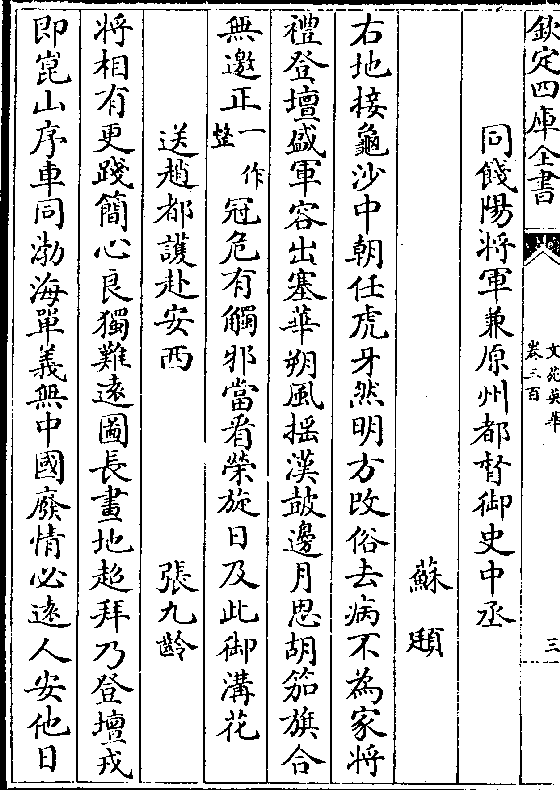 欽定四庫全書
文苑英華
卷三百
三
同餞陽將軍兼原州都督御史中丞
蘇頲
右地接龜沙中朝任虎牙然明方改俗去病不為家將
禮登壇盛軍容出塞華朔風摇漢鼓邊月思胡笳旗合
無邀正一作整冠危有觸邪當看榮旋日及此御溝花
送趙都護赴安西
張九齡
將相有更踐簡心良獨難遠圖長畫地超拜乃登壇戎
即崑山序車同渤海單義無中國廢情必遠人安他日